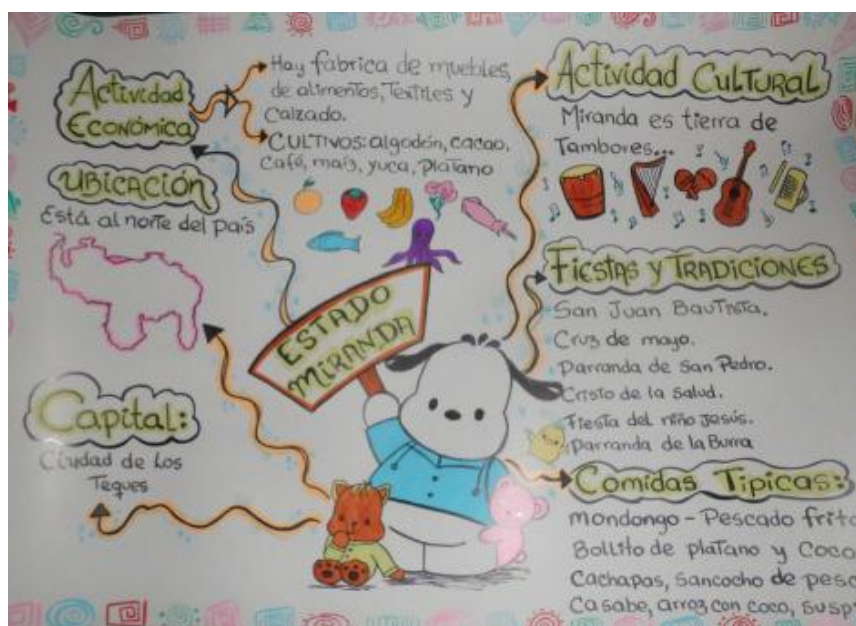 Actividad
Económica
Hay fábrica de muebles,
de alimentos, Textiles y
Calzado.
CULTIVOS: algodón, cacao,
Café, maíz, yuca, Platano
Ubicación
Está al norte del país
Capital:
Ciudad de Los
Teques
ESTADO
MIRANDA
Actividad Cultural
Miranda es tierra de
Tambores...
Fiestas y Tradiciones
San Juan Bautista.
Cruz de mayo.
Parranda de San Pedro.
Cristo de la Salud.
Fiesta del niño Jesús.
Parranda de la Burra
Comidas Tipicas:
Mondongo - Pescado frito
Bollito de platano y Coco
Cachapas, Sancocho de
Casabe, arroz con coco,